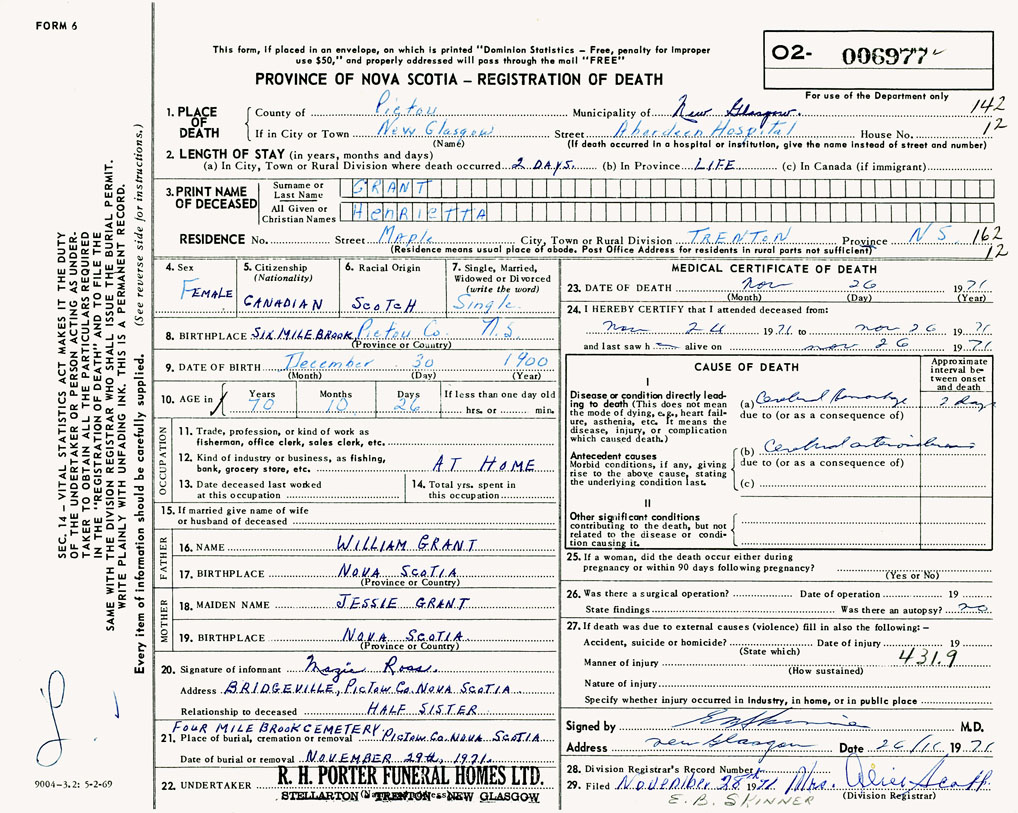 FORM 6
This form, if placed in an envelope, on which is printed "Dominion Statistics – Free, penalty for improper
use $50," and properly addressed will pass through the mail "FREE"
PROVINCE OF NOVA SCOTIA – REGISTRATION OF DEATH
O2- 006977
For use of the Department only
142
12
1. PLACE OF DEATH
County of Pictou Municipality of New Glasgow.
If in City or Town New Glasgow Street Aberdeen Hospital House No.
(Name) (If death occurred in a hospital or institution, give the name instead of street and number)
2. LENGTH OF STAY (in years, months and days)
(a) In City, Town or Rural Division where death occurred 2 DAYS. (b) In Province LIFE (c) In Canada (if immigrant)
3. PRINT NAME OF DECEASED
Surname or Last Name GRANT
All Given or Christian Names HENRIETTA
RESIDENCE No. Street Maple City, Town or Rural Division TRENTON Province N.S. 162
12
(Residence means usual place of abode. Post Office Address for residents in rural parts not sufficient)
4. Sex FEMALE
5. Citizenship (Nationality) CANADIAN
6. Racial Origin SCOTCH
7. Single, Married, Widowed or Divorced (write the word) Single
8. BIRTHPLACE SIX MILE BROOK, Pictou Co. N.S.
(Province or Country)
9. DATE OF BIRTH December 30 1900
(Month) (Day) (Year)
10. AGE in Years 70 Months 10 Days 26 If less than one day old hrs. or min.
OCCUPATION
11. Trade, profession, or kind of work as
fisherman, office clerk, sales clerk, etc.
12. Kind of industry or business, as fishing,
bank, grocery store, etc. AT HOME
13. Date deceased last worked
at this occupation
14. Total yrs. spent in
this occupation
15. If married give name of wife
or husband of deceased
FATHER
16. NAME WILLIAM GRANT
17. BIRTHPLACE NOVA SCOTIA
(Province or Country)
MOTHER
18. MAIDEN NAME JESSIE GRANT
19. BIRTHPLACE NOVA SCOTIA
(Province or Country)
20. Signature of informant Mazie Ross.
Address BRIDGEVILLE, PICTOU CO. NOVA SCOTIA
Relationship to deceased HALF SISTER
FOUR MILE BROOK CEMETERY
21. Place of burial, cremation or removal PICTOU CO. NOVA SCOTIA
Date of burial or removal NOVEMBER 29th, 1971.
22. UNDERTAKER R. H. PORTER FUNERAL HOMES LTD.
STELLARTON TRENTON NEW GLASGOW
MEDICAL CERTIFICATE OF DEATH
23. DATE OF DEATH Nov 26 1971
(Month) (Day) (Year)
24. I HEREBY CERTIFY that I attended deceased from:
Nov 24 1971 to Nov 26 1971
and last saw h alive on Nov 26 1971
CAUSE OF DEATH
Approximate interval between onset and death
I
Disease or condition directly leading to death (This does not mean the mode of dying, e.g., heart failure, asthenia, etc. It means the disease, injury, or complication which caused death.)
(a) Cerebral Hemorrhage 2 days
due to (or as a consequence of)
Antecedent causes
Morbid conditions, if any, giving rise to the above cause, stating the underlying condition last.
(b) Cerebral arteriosclerosis
due to (or as a consequence of)
(c)
II
Other significant conditions
contributing to the death, but not related to the disease or condition causing it.
25. If a woman, did the death occur either during
pregnancy or within 90 days following pregnancy?
(Yes or No)
26. Was there a surgical operation? Date of operation 19
State findings Was there an autopsy? no
27. If death was due to external causes (violence) fill in also the following: –
Accident, suicide or homicide? Date of injury 19
(State which)
Manner of injury 431.9
(How sustained)
Nature of injury
Specify whether injury occurred in Industry, in home, or in public place
Signed by M.D.
Address New Glasgow Date 26/11 1971
28. Division Registrar's Record Number
29. Filed November 28th 1971 Mrs. Scott
(Division Registrar)
E. B. SKINNER
SEC. 14 – VITAL STATISTICS ACT MAKES IT THE DUTY
OF THE UNDERTAKER OR PERSON ACTING AS UNDER-
TAKER TO OBTAIN ALL THE PARTICULARS REQUIRED
IN THE "REGISTRATION OF DEATH" AND TO FILE THE
SAME WITH THE DIVISION REGISTRAR WHO SHALL ISSUE THE BURIAL PERMIT.
WRITE PLAINLY WITH UNFADING INK. THIS IS A PERMANENT RECORD.
Every item of information should be carefully supplied. (See reverse side for instructions.)
9004-3.2: 5-2-69